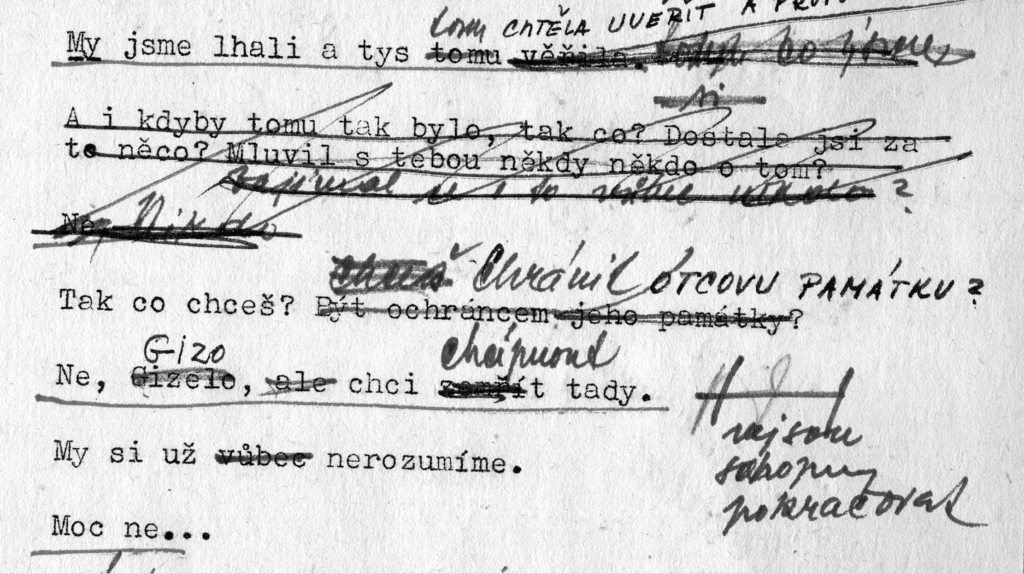 tomu CHTĚLA UVĚŘIT A
My jsme lhali a tys tomu věřila.
si
A i kdyby tomu tak bylo, tak co? Dostala jsi za
to něco? Mluvil s tebou někdy někdo o tom?
se i to vůbec někdo?
Ne. Nikdo
chceš Chránit OTCOVU PAMÁTKU?
Tak co chceš? Být ochráncem jeho památky?
Gizo chcípnout
Ne, Gizelo, ale chci zemřít tady.
nejsou
schopny
pokračovat
My si už vůbec nerozumíme.
Moc ne...